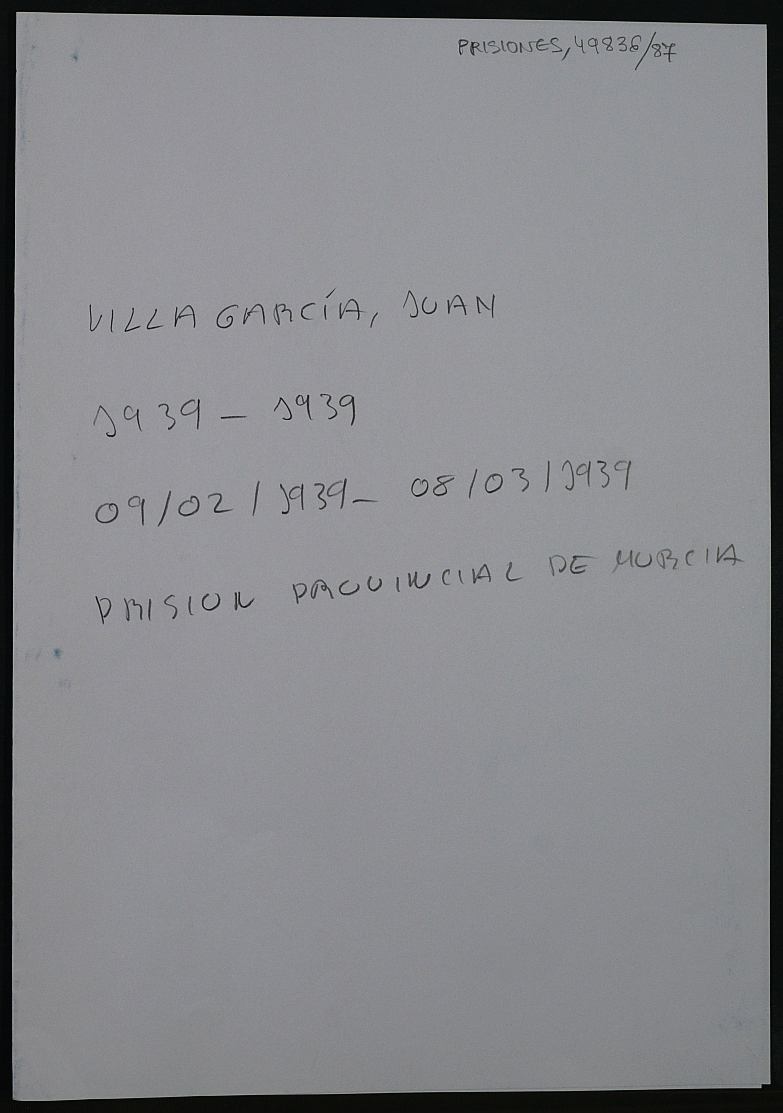 PRISIONES, 49836/87
VILLA GARCÍA, JUAN
1939 - 1939
09/02/1939 - 08/03/1939
PRISION PROVINCIAL DE MURCIA